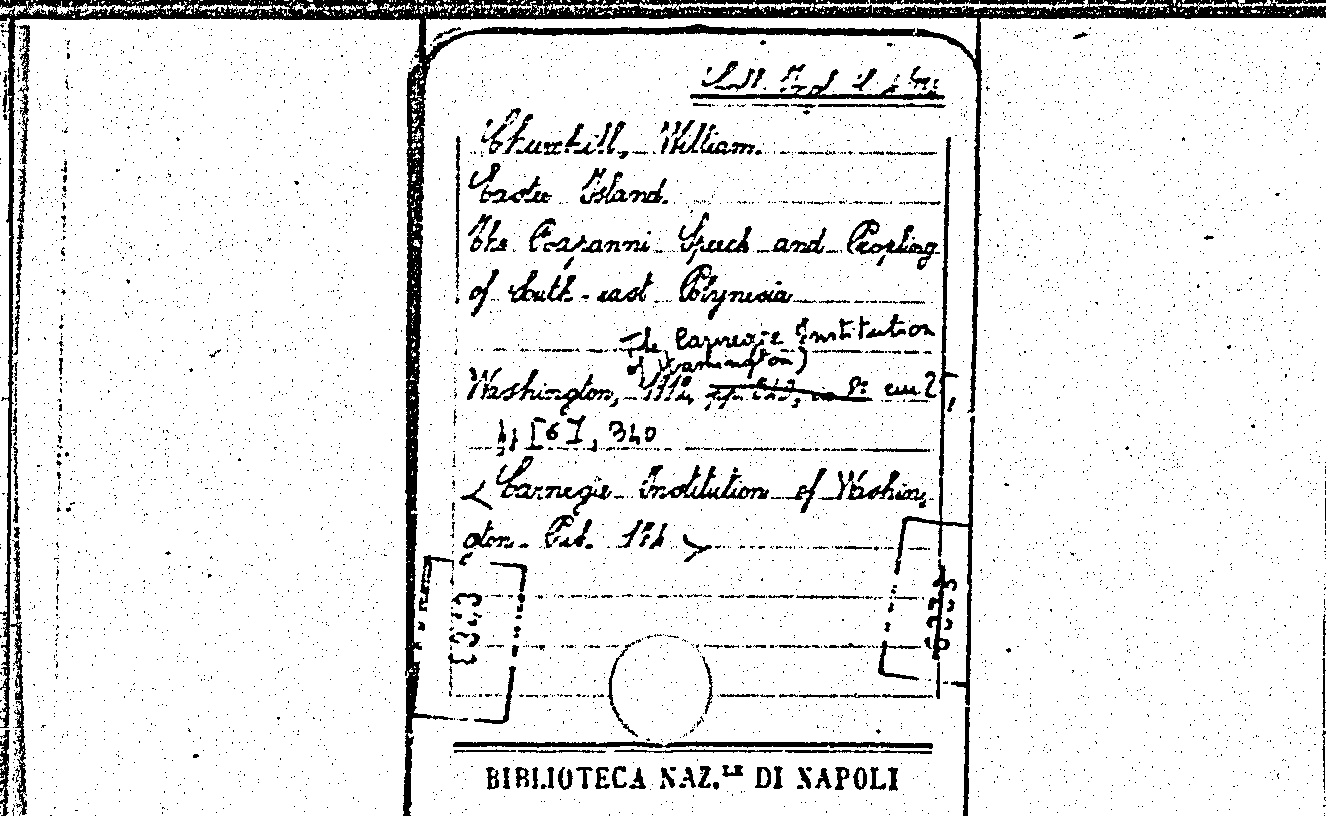 Churchill, William.
Easter Island.
The Rapanui Speech and Peopling
of South-east Polynesia
The Carnegie Institution
of Washington)
Washington, 1912, cm 25,
4, [6], 340
< Carnegie Institution of Washin,
gton. Pub. 174 >
BIBLIOTECA NAZ.LE DI NAPOLI